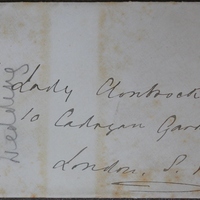 Lady Clonbrock
10 Cadogan Gard
London. S.
Wedding